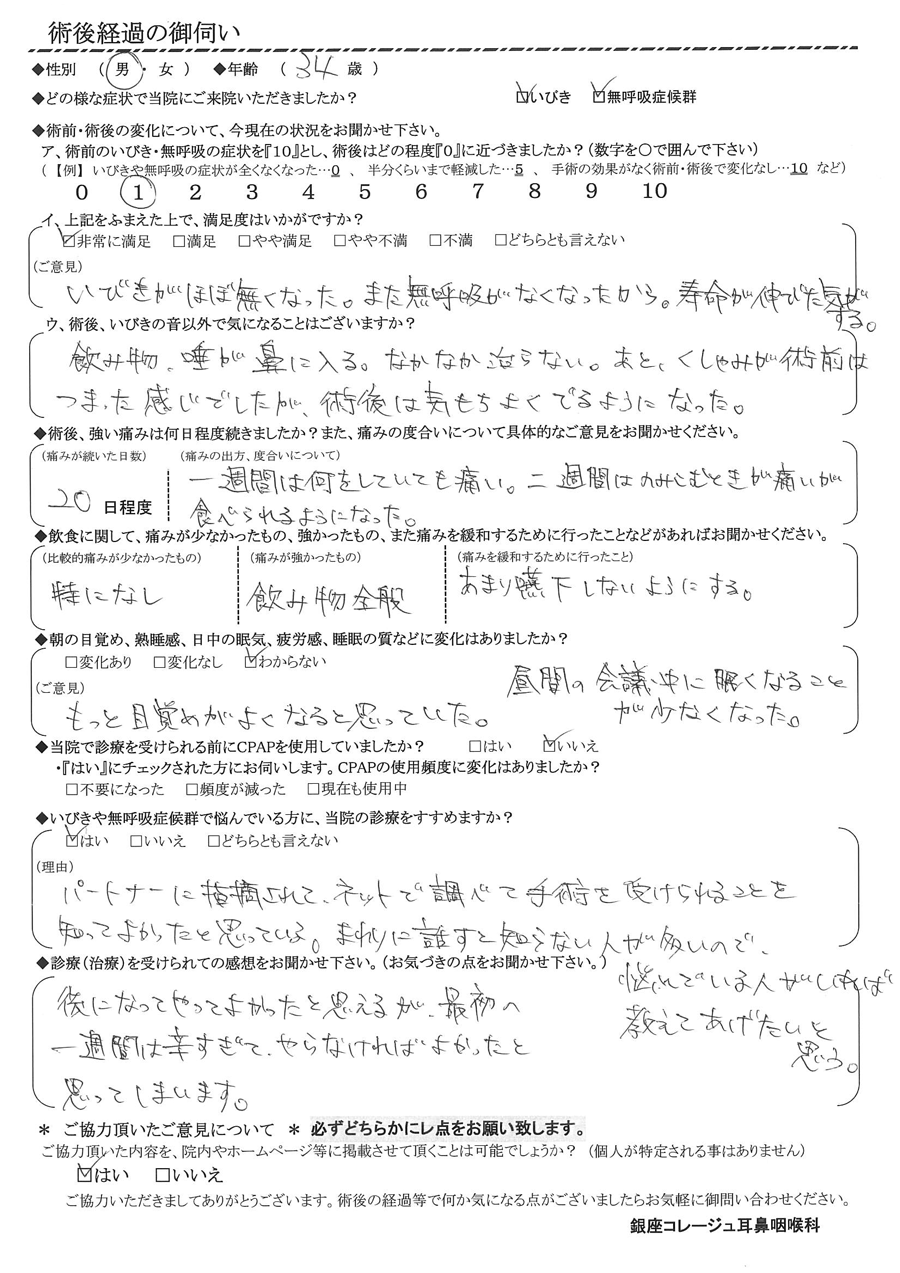 術後経過の御伺い
◆性別 （ 男 ・ 女 ） ◆年齢 （ 34 歳 ）
◆どの様な症状で当院にご来院いただきましたか？ ☑いびき ☑無呼吸症候群
◆術前・術後の変化について、今現在の状況をお聞かせ下さい。
ア、術前のいびき・無呼吸の症状を『10』とし、術後はどの程度『0』に近づきましたか？（数字を○で囲んで下さい）
（【例】 いびきや無呼吸の症状が全くなくなった…0 、 半分くらいまで軽減した…5 、 手術の効果がなく術前・術後で変化なし…10 など）
0 1 2 3 4 5 6 7 8 9 10
イ、上記をふまえた上で、満足度はいかがですか？
☑非常に満足 □満足 □やや満足 □やや不満 □不満 □どちらとも言えない
（ご意見）
いびきがほぼ無くなった。また無呼吸がなくなったから。寿命が伸びた気が
する。
ウ、術後、いびきの音以外で気になることはございますか？
飲み物、唾が鼻に入る。なかなか治らない。あと、くしゃみが術前は
つまった感じでしたが、術後は気もちよくでるようになった。
◆術後、強い痛みは何日程度続きましたか？また、痛みの度合いについて具体的なご意見をお聞かせください。
（痛みが続いた日数） （痛みの出方、度合いについて）
20 日程度
一週間は何をしていても痛い。二週間はのみこむときが痛いが
食べられるようになった。
◆飲食に関して、痛みが少なかったもの、強かったもの、また痛みを緩和するために行ったことなどがあればお聞かせください。
（比較的痛みが少なかったもの） （痛みが強かったもの） （痛みを緩和するために行ったこと）
特になし 飲み物全般 あまり嚥下しないようにする。
◆朝の目覚め、熟睡感、日中の眠気、疲労感、睡眠の質などに変化はありましたか？
□変化あり □変化なし ☑わからない
（ご意見）
もっと目覚めがよくなると思っていた。
昼間の会議中に眠くなること
が少なくなった。
◆当院で診療を受けられる前にCPAPを使用していましたか？ □はい ☑いいえ
・『はい』にチェックされた方にお伺いします。CPAPの使用頻度に変化はありましたか？
□不要になった □頻度が減った □現在も使用中
◆いびきや無呼吸症候群で悩んでいる方に、当院の診療をすすめますか？
☑はい □いいえ □どちらとも言えない
（理由）
パートナーに指摘されて、ネットで調べて手術を受けられることを
知ってよかったと思っている。まわりに話すと知らない人が多いので、
悩んでいる人がいれば
教えてあげたいと
思う。
◆診療（治療）を受けられての感想をお聞かせ下さい。（お気づきの点をお聞かせ下さい。）
後になってやってよかったと思えるが、最初の
一週間は辛すぎて、やらなければよかったと
思ってしまいます。
＊ ご協力頂いたご意見について ＊ 必ずどちらかにレ点をお願い致します。
ご協力頂いた内容を、院内やホームページ等に掲載させて頂くことは可能でしょうか？ （個人が特定される事はありません）
☑はい □いいえ
ご協力いただきましてありがとうございます。術後の経過等で何か気になる点がございましたらお気軽に御問い合わせください。
銀座コレージュ耳鼻咽喉科